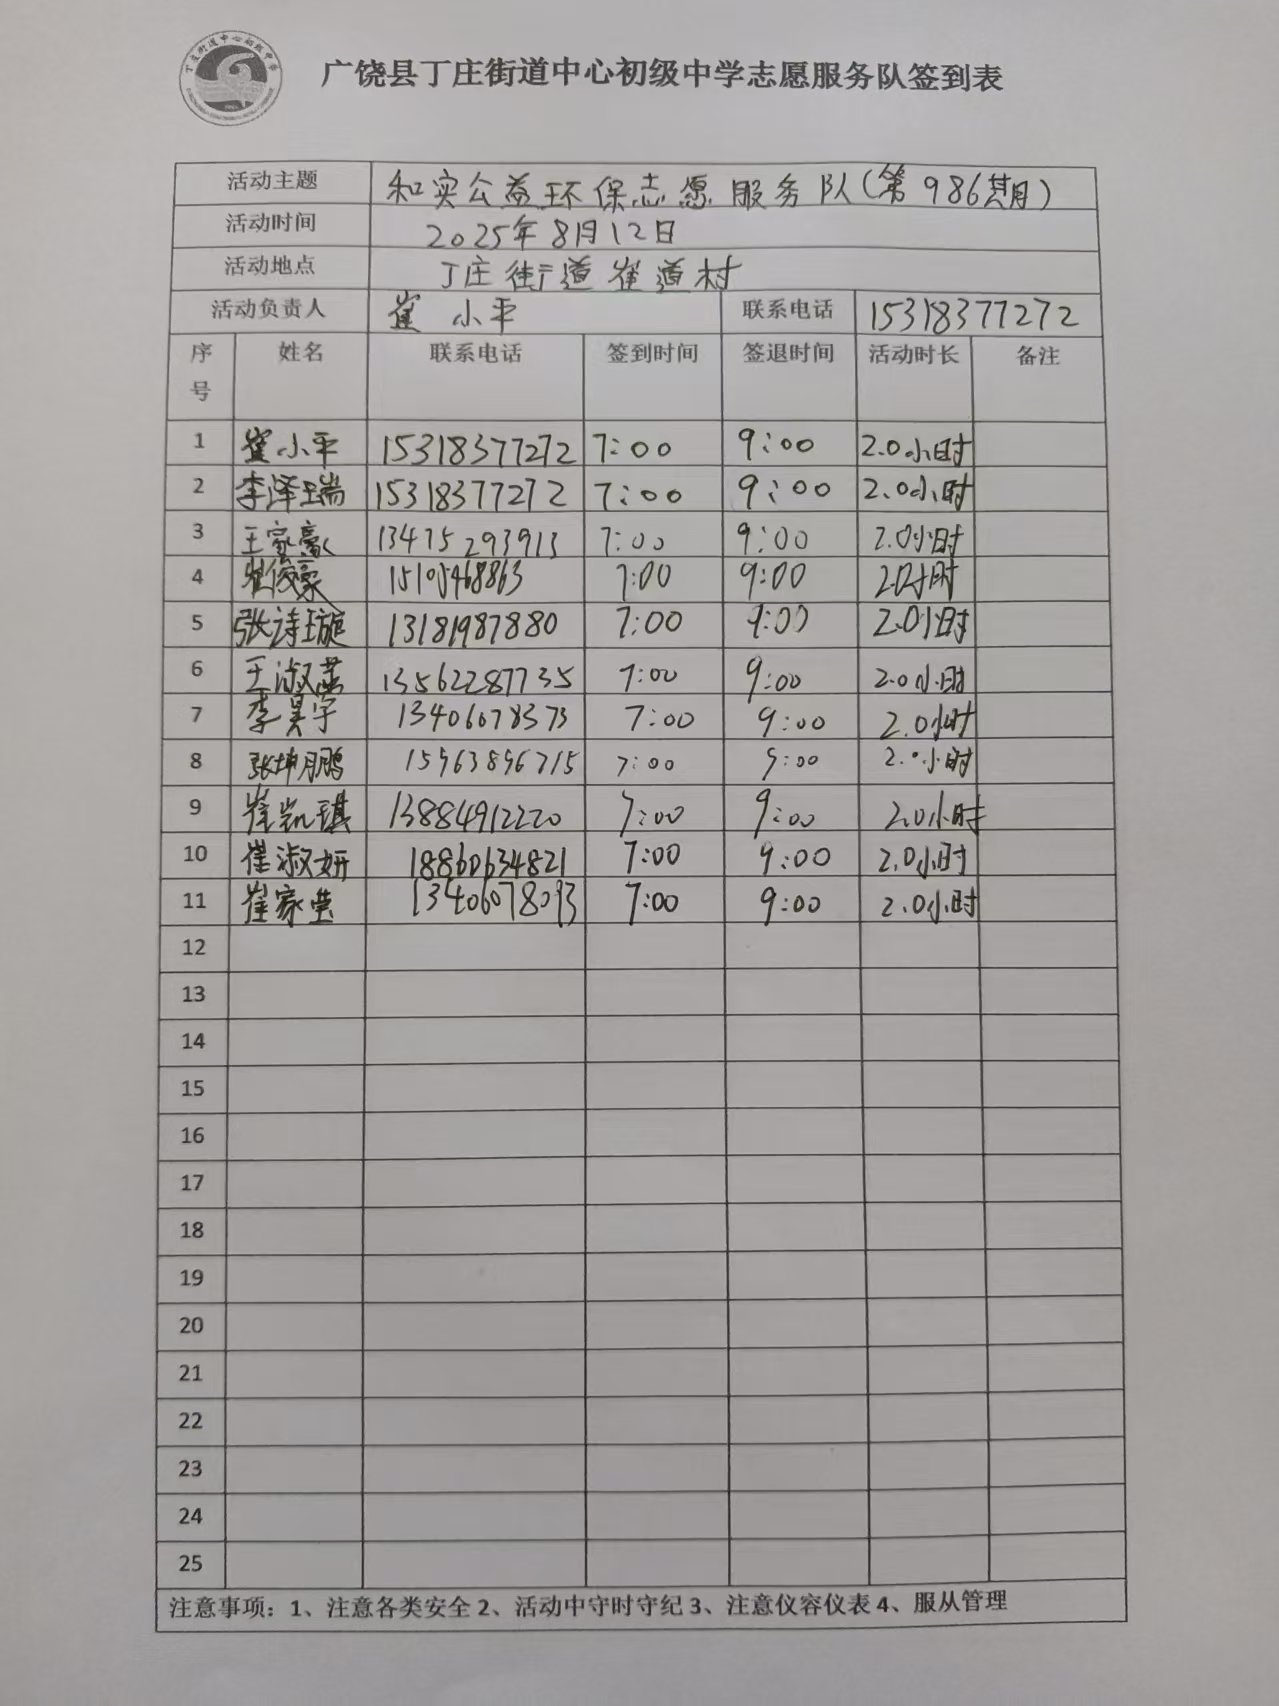 广饶县丁庄街道中心初级中学志愿服务队签到表
活动主题 和实公益环保志愿服务队(第986期)
活动时间 2025年8月12日
活动地点 丁庄街道崔道村
活动负责人 崔小平 联系电话 15318377272
序号 姓名 联系电话 签到时间 签退时间 活动时长 备注
1 崔小平 15318377272 7:00 9:00 2.0小时
2 李泽瑞 15318377272 7:00 9:00 2.0小时
3 王家豪 13475293913 7:00 9:00 2.0小时
4 崔俊豪 15105468863 7:00 9:00 2.0小时
5 张诗璇 13181987880 7:00 9:00 2.0小时
6 王淑燕 13562287735 7:00 9:00 2.0小时
7 李昊宇 13406078373 7:00 9:00 2.0小时
8 张坤鹏 15963896715 7:00 9:00 2.0小时
9 崔凯琪 13884912220 7:00 9:00 2.0小时
10 崔淑妍 18860634821 7:00 9:00 2.0小时
11 崔家莹 13406078093 7:00 9:00 2.0小时
12
13
14
15
16
17
18
19
20
21
22
23
24
25
注意事项：1、注意各类安全 2、活动中守时守纪 3、注意仪容仪表 4、服从管理